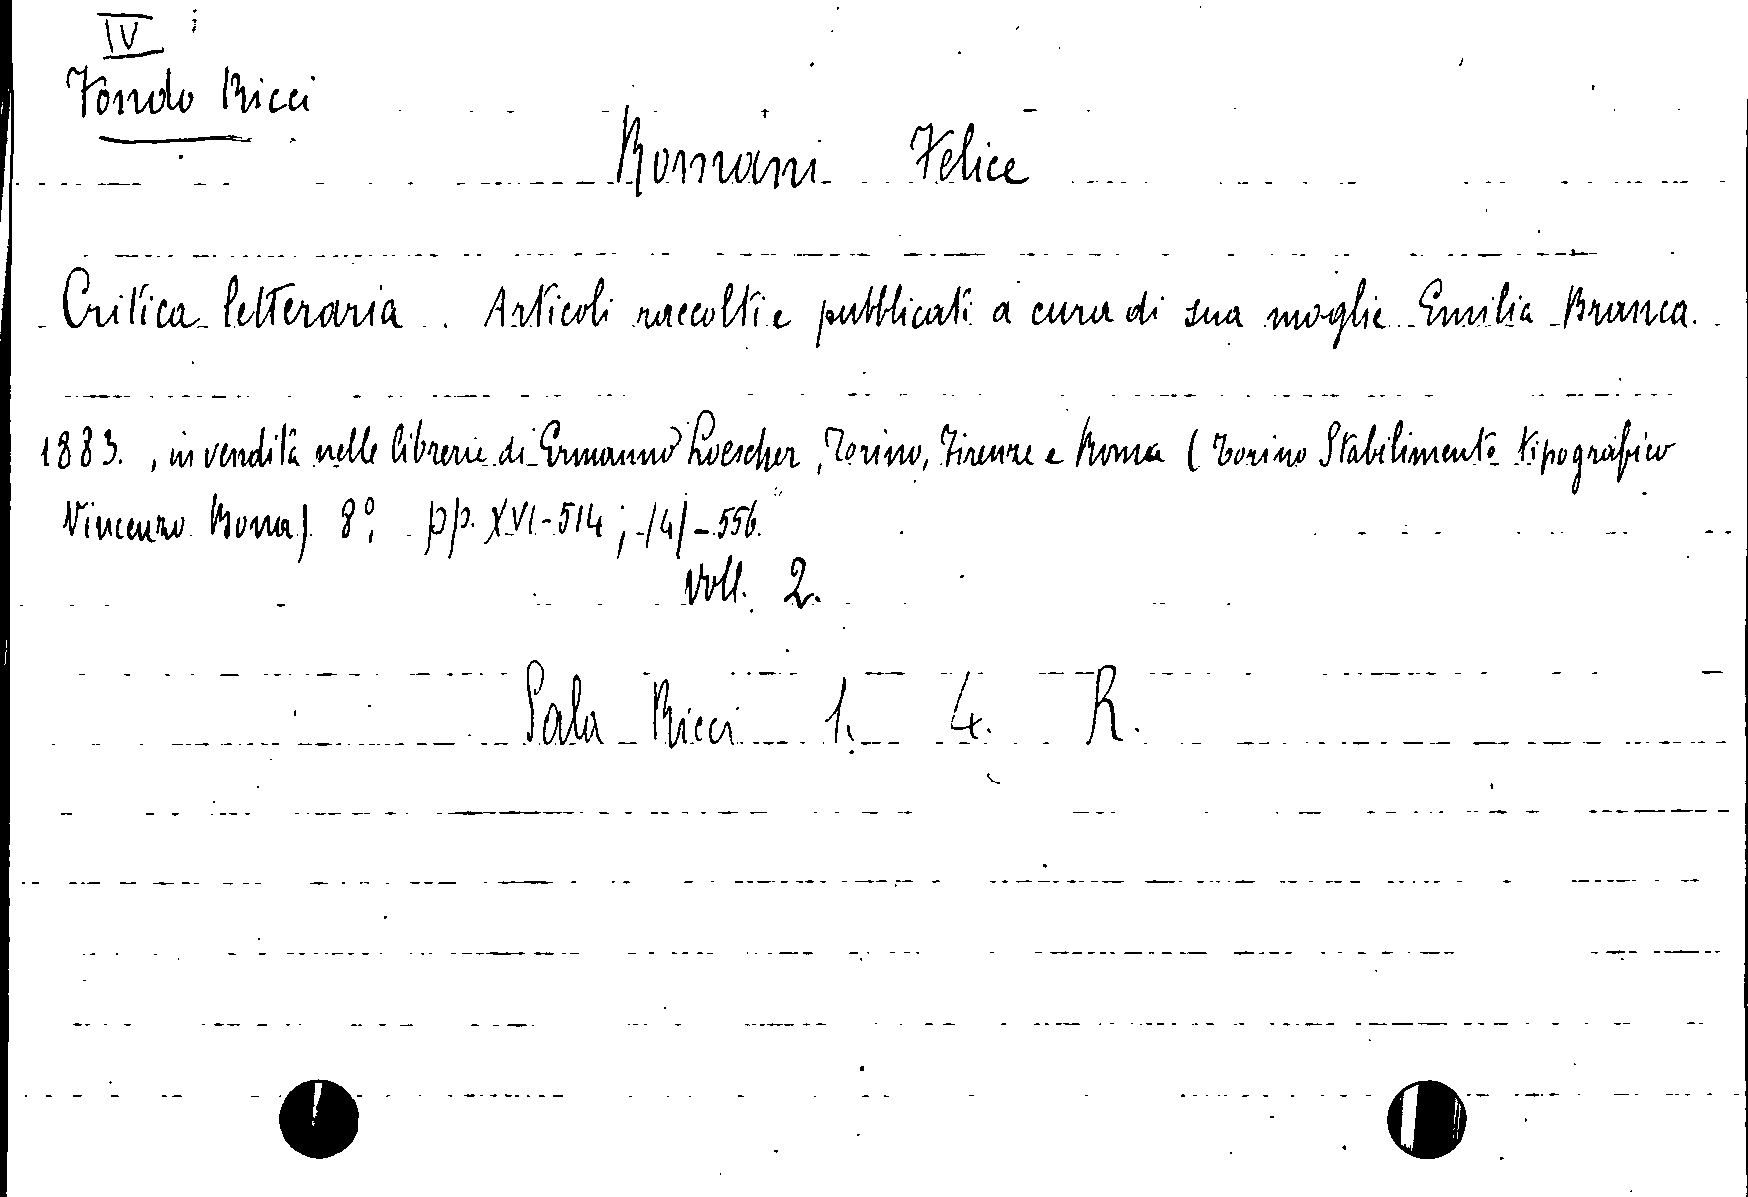 IV
Fondo Ricci
Romani Felice
Critica letteraria. Articoli raccolti e pubblicati a cura di sua moglie Emilia Branca.
1883., in vendita nelle librerie di Ermanno Loescher, Torino, Firenze e Roma (Torino Stabilimento tipografico
Vincenzo Bona) 8°; pp. XVI-514; /4/-556.
Voll. 2.
Sala Ricci 1. 4. R.